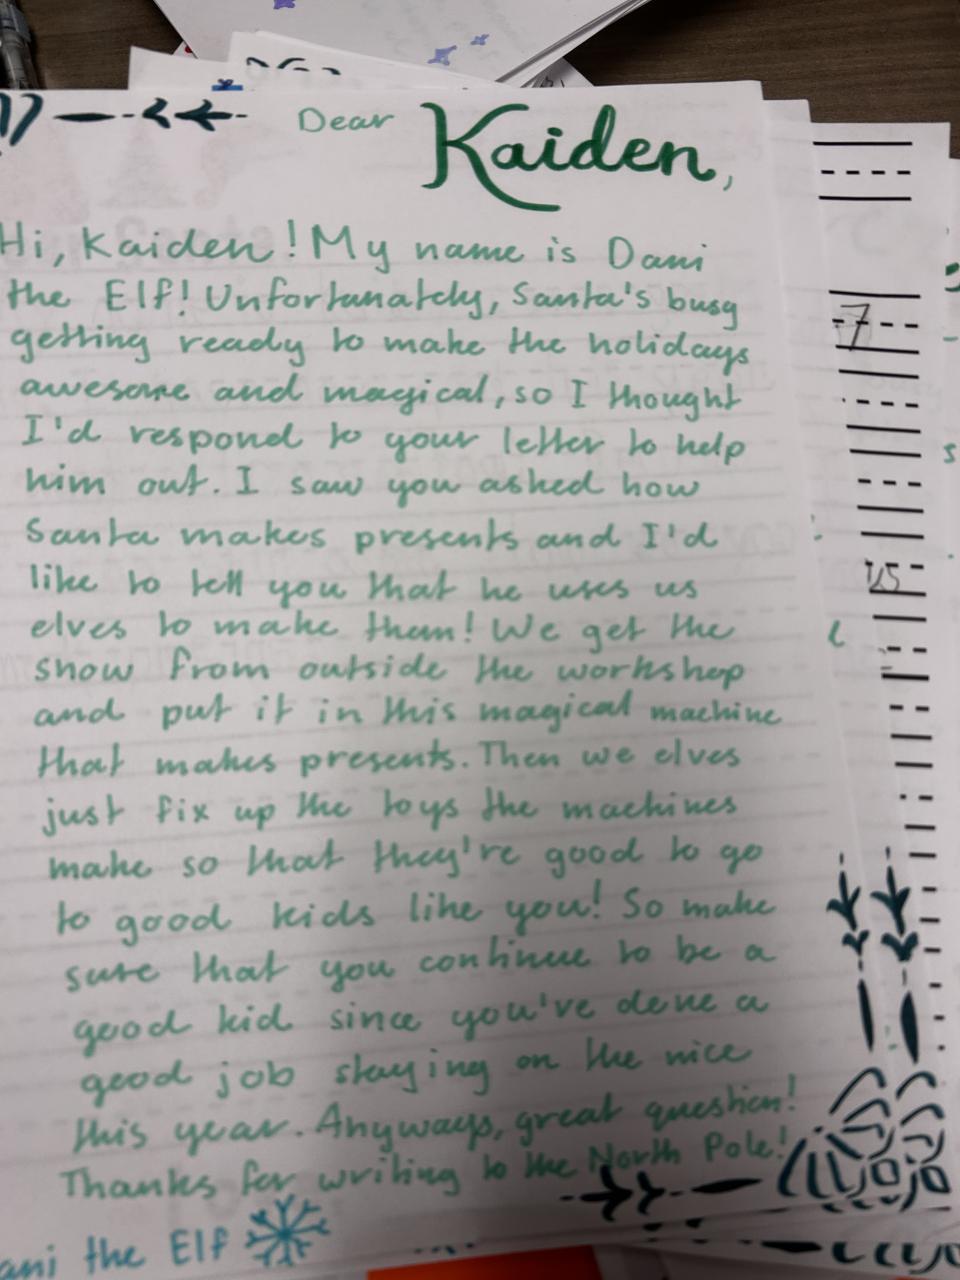 Dear Kaiden,
Hi, Kaiden! My name is Dani
the Elf! Unfortunately, Santa's busy
getting ready to make the holidays
awesome and magical, so I thought
I'd respond to your letter to help
him out. I saw you asked how
Santa makes presents and I'd
like to tell you that he uses us
elves to make them! We get the
snow from outside the workshop
and put it in this magical machine
that makes presents. Then we elves
just fix up the toys the machines
make so that they're good to go
to good kids like you! So make
sure that you continue to be a
good kid since you've done a
good job staying on the nice
this year. Anyways, great question!
Thanks for writing to the North Pole!
ani the Elf
7